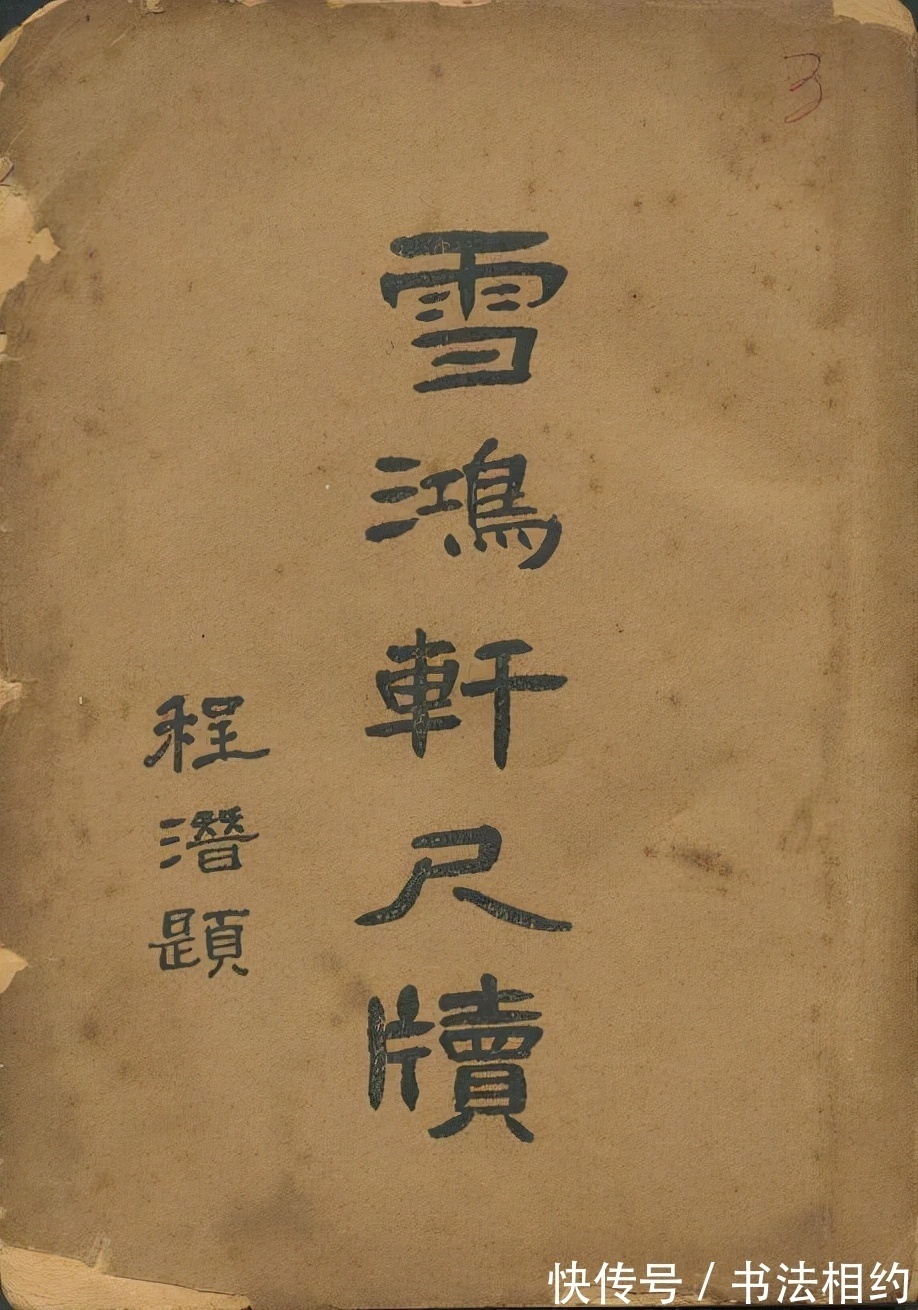 雪鴻軒尺牘
程潛題
3
快传号 / 书法相约